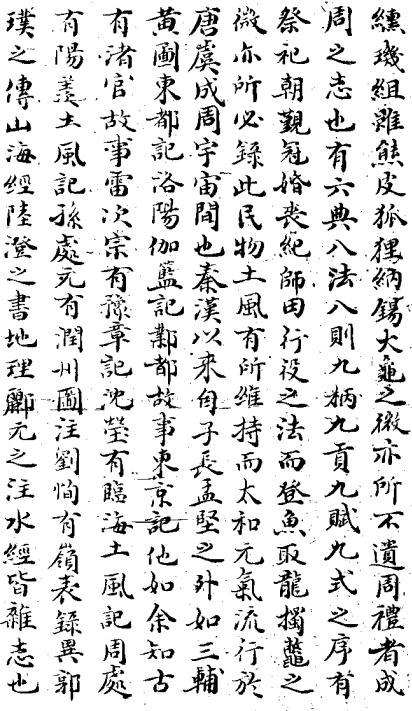 纁璣組雖熊皮狐狸納錫大龜之微亦所不遺周禮者成
周之志也有六典八法八則九柄九貢九賦九式之序有
祭祀朝覲冠婚喪紀師田行役之法而登魚取龍擉鼈之
微亦所必錄此民物土風有所維持而太和元氣流行於
唐虞成周宇宙間也秦漢以來自子長孟堅之外如三輔
黃圖東都記洛陽伽藍記鄴都故事東京記他如余知古
有渚宮故事雷次宗有豫章記沈瑩有臨海土風記周處
有陽羨土風記孫處元有潤州圖注劉恂有嶺表錄異郭
璞之傳山海經陸澄之書地理酈元之注水經皆雜志也